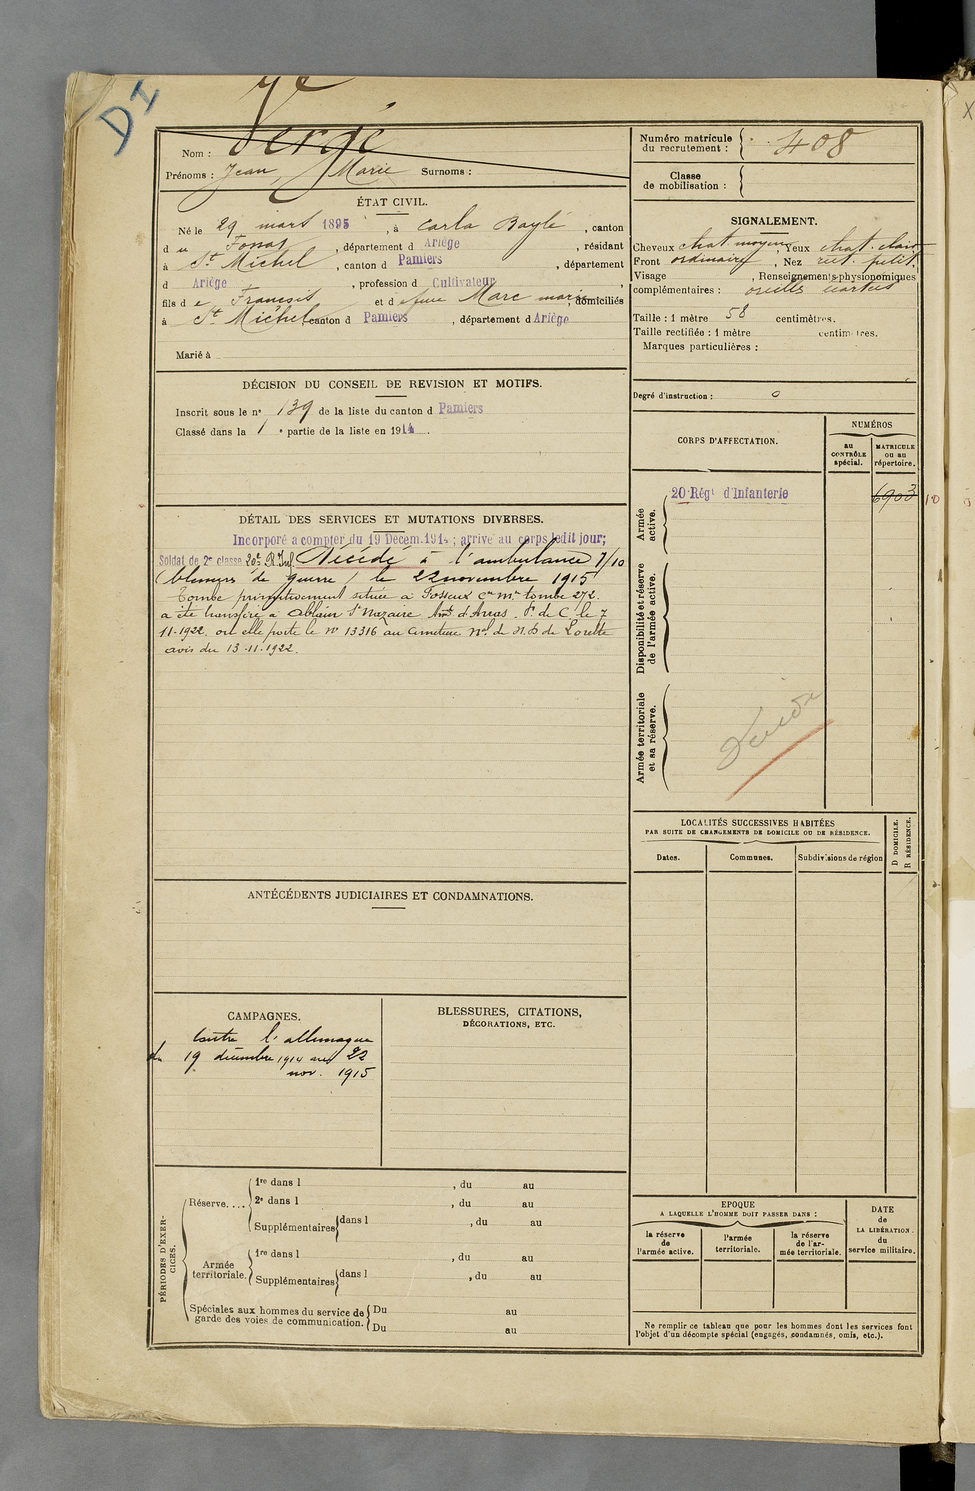 DI
Ve
Nom : Vergé
Prénoms : Jean Marie Surnoms :
Numéro matricule du recrutement : 408
Classe de mobilisation :
ÉTAT CIVIL.
Né le 29 mars 1895, à Carla Bayle, canton
du Fossat, département d Ariège, résidant
à St Michel, canton d Pamiers, département
d Ariège, profession d Cultivateur
fils de François et de feue Marc marie, domiciliés
à St Michel canton d Pamiers, département d Ariège
Marié à
SIGNALEMENT.
Cheveux chat. moyen, Yeux chat. clair
Front ordinaire, Nez rect. petit,
Visage , Renseignements physionomiques
complémentaires : oreilles écartées
Taille : 1 mètre 58 centimètres.
Taille rectifiée : 1 mètre centimètres.
Marques particulières :
Degré d'instruction : 0
DÉCISION DU CONSEIL DE REVISION ET MOTIFS.
Inscrit sous le n° 139 de la liste du canton d Pamiers
Classé dans la 1 e partie de la liste en 1914.
DÉTAIL DES SERVICES ET MUTATIONS DIVERSES.
Incorporé a compter du 19 Décem. 1914 ; arrivé au corps ledit jour;
Soldat de 2e classe 20e R. Inf. Décédé à l'ambulance 7/10
(blessures de guerre) le 22 novembre 1915
Tombe primitivement située à Fosseux Cre Mre tombe 272.
a été transféré à Ablain St Nazaire Arrdt d'Arras. P. de C. le 7
11-1922. où elle porte le N° 13316 au Cimetière Nal de N. D. de Lorette
avis du 13-11-1922.
CORPS D'AFFECTATION.
NUMÉROS
au CONTRÔLE spécial.
MATRICULE ou au répertoire.
Armée active.
20 Régt d'Infanterie
6903
10
Disponibilité et réserve de l'armée active.
Armée territoriale et sa réserve.
LOCALITÉS SUCCESSIVES HABITÉES
PAR SUITE DE CHANGEMENTS DE DOMICILE OU DE RÉSIDENCE.
D DOMICILE.
R RÉSIDENCE.
Dates.
Communes.
Subdivisions de région
ANTÉCÉDENTS JUDICIAIRES ET CONDAMNATIONS.
CAMPAGNES.
Contre l'allemagne
du 19 décembre 1914 au 22
nov. 1915
BLESSURES, CITATIONS,
DÉCORATIONS, ETC.
PÉRIODES D'EXERCICES.
Réserve....
1re dans l , du au
2e dans l , du au
Supplémentaires dans l , du au
Armée territoriale.
1re dans l , du au
Supplémentaires dans l , du au
Spéciales aux hommes du service de
garde des voies de communication.
Du au
Du au
EPOQUE
A LAQUELLE L'HOMME DOIT PASSER DANS :
la réserve de l'armée active.
l'armée territoriale.
la réserve de l'armée territoriale.
DATE de LA LIBÉRATION du service militaire.
Ne remplir ce tableau que pour les hommes dont les services font
l'objet d'un décompte spécial (engagés, condamnés, omis, etc.).